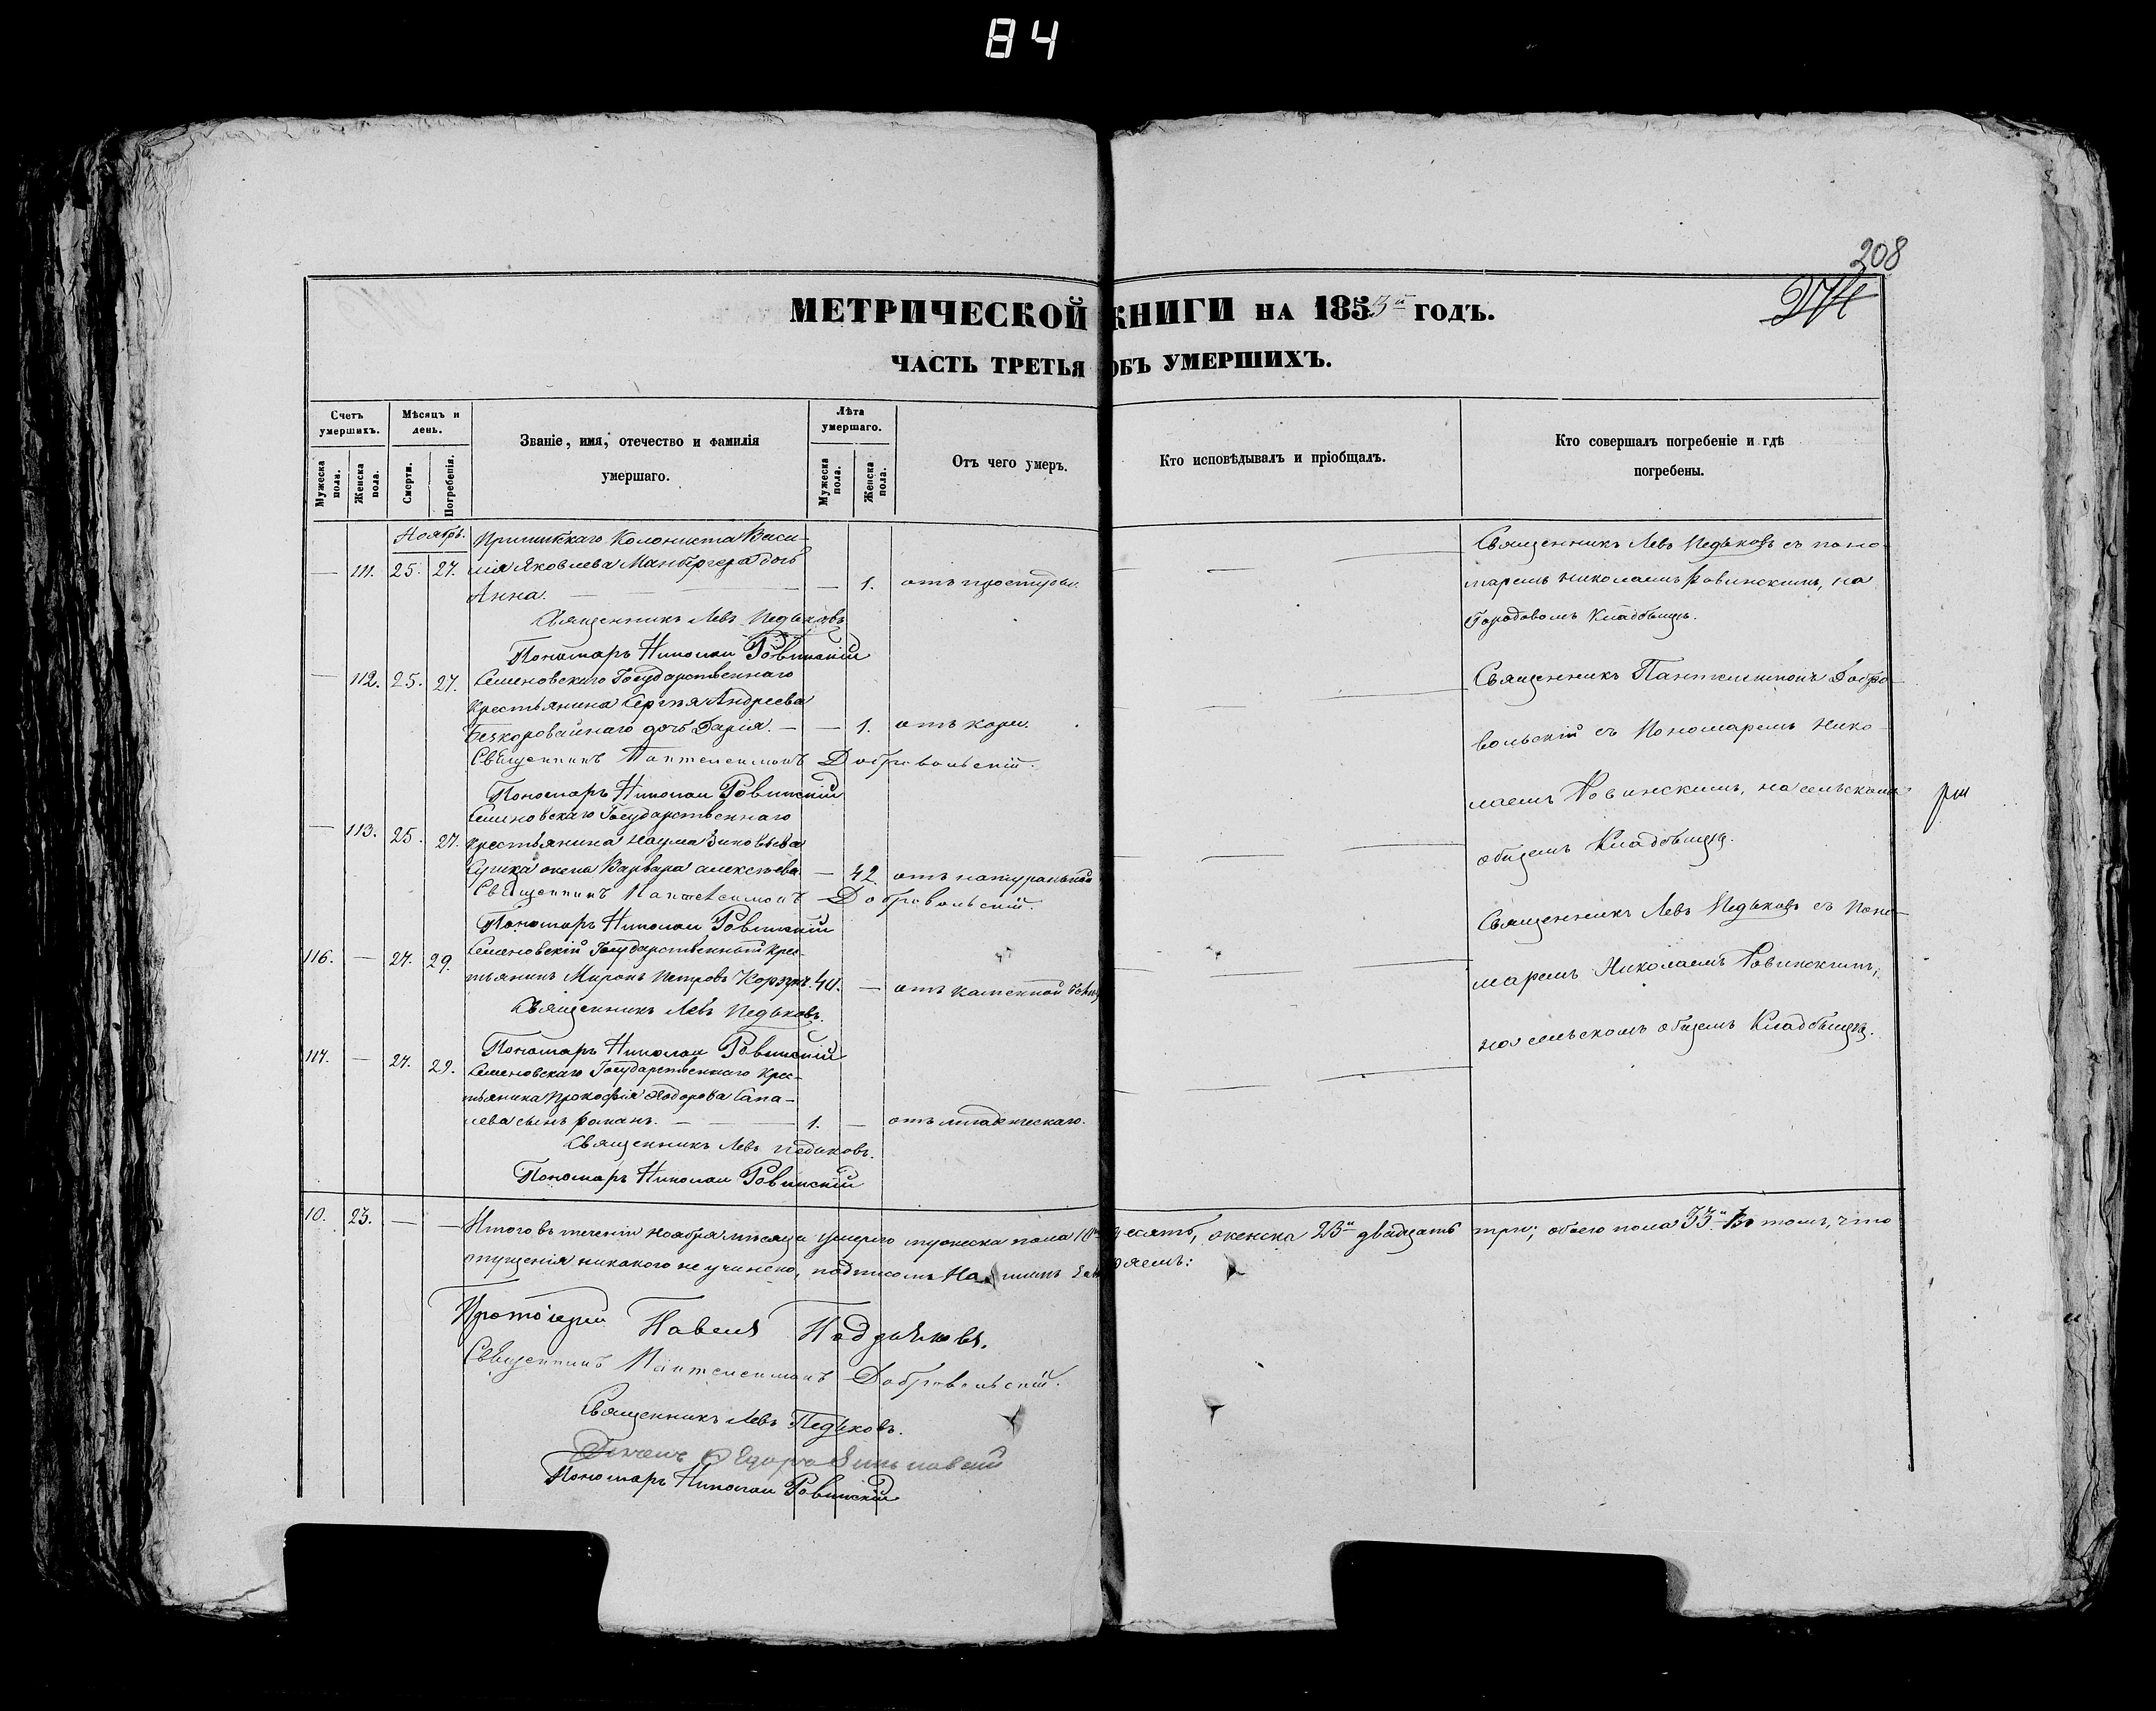 84
208
274
МЕТРИЧЕСКОЙ КНИГИ НА 1853й ГОДЪ.
ЧАСТЬ ТРЕТЬЯ ОБЪ УМЕРШИХЪ.
Счетъ умершихъ.
Мужеска пола.
Женска пола.
Мѣсяцъ и день.
Смерти.
Погребенія.
Званіе, имя, отечество и фамилія
умершаго.
Лѣта умершаго.
Мужеска пола.
Женска пола.
Отъ чего умеръ.
Кто исповѣдывалъ и пріобщалъ.
Кто совершалъ погребеніе и гдѣ
погребены.
Ноябрь.
Колониста Васи-
— 111. 25. 27. лія Яковлева дочь
Анна. — — 1. отъ простуды.
Священникъ Левъ Педьковъ
Пономарь Николай Ровинскій
Священникъ Левъ Педьковъ съ поно-
маремъ Николаемъ Ровинскимъ, на
Городовомъ Кладбищѣ.
— 112. 25. 27. Семеновскаго Государственнаго
Крестьянина Сергѣя Андреева
Безкоровайнаго дочь Дарія. — — 1. отъ кори.
Священникъ Пантелеимонъ Добровольскій.
Пономарь Николай Ровинскій
Священникъ Пантелеимонъ Добро-
вольскій съ Пономаремъ Нико-
лаемъ Ровинскимъ, на сельскомъ
общемъ Кладбищѣ.
— 113. 25. 27. Семеновскаго Государственнаго
крестьянина Наума Зиновьева
жена Варвара Алексѣева — 42. отъ натуральной
Священникъ Пантелеимонъ Добровольскій.
Пономарь Николай Ровинскій
116. — 27. 29. Семеновскій Государственный крес-
тьянинъ Миронъ Петровъ Корзунъ. 40. — отъ каменной
Священникъ Левъ Педьковъ.
Пономарь Николай Ровинскій
Священникъ Левъ Педьковъ съ Поно-
маремъ Николаемъ Ровинскимъ,
на сельскомъ общемъ Кладбищѣ.
117. — 27. 29. Семеновскаго Государственнаго Крес-
тьянина Прокофія Ѳодорова Сапа-
лева сынъ Романъ. — 1. — отъ младенческаго.
Священникъ Левъ Педьковъ.
Пономарь Николай Ровинскій
10. 23. — — Итого въ теченіи Ноября мѣсяца умерло мужеска пола 10ть десять, женска 23и двадцать три; обоего пола 33и въ томъ, что
опущенія никакого не учинено, подписомъ Нашимъ
Протоіерей Павелъ
Священникъ Пантелеимонъ Добровольскій.
Священникъ Левъ Педьковъ.
Пономарь Николай Ровинскій